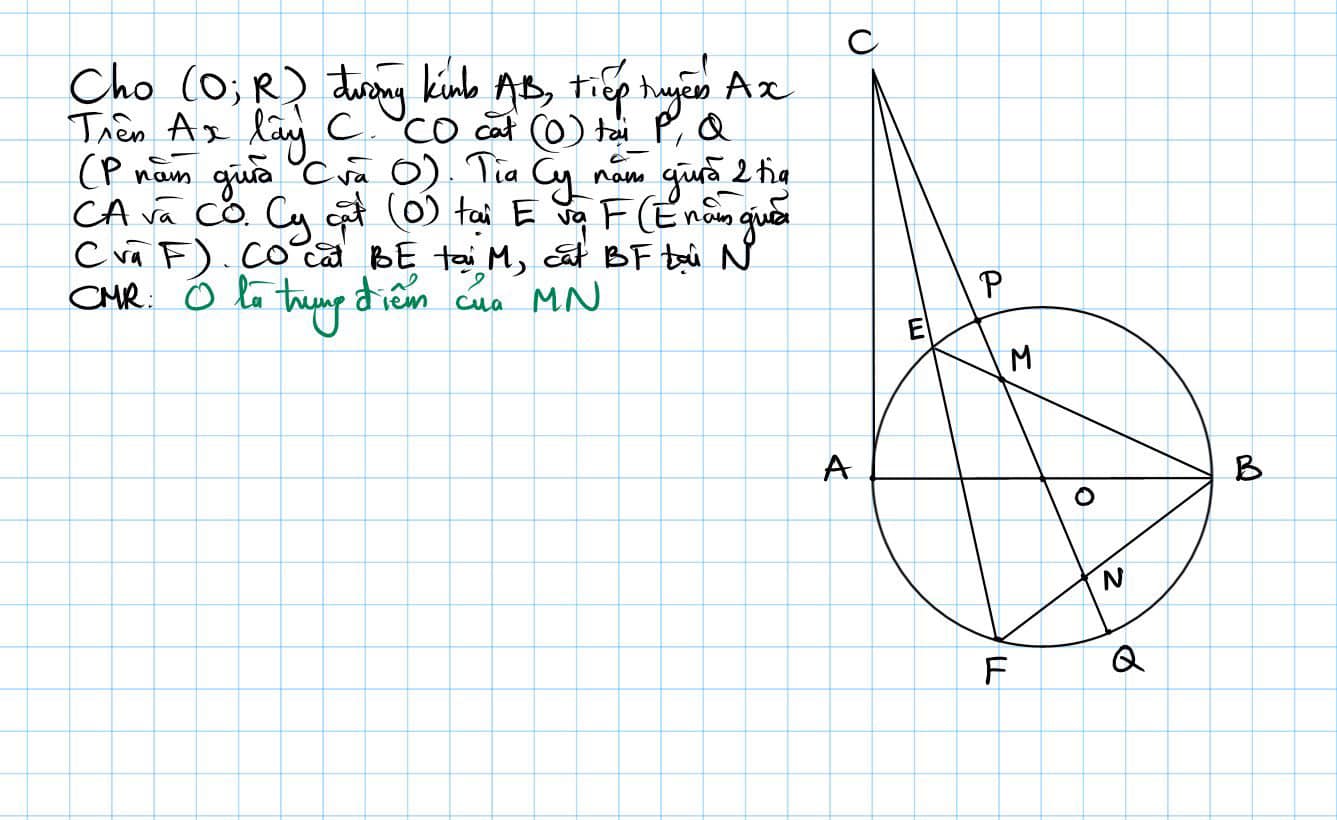 Cho (O; R) đường kính AB, tiếp tuyến Ax
Trên Ax lấy C. CO cắt (O) tại P, Q
(P nằm giữa C và O). Tia Cy nằm giữa 2 tia
CA và CO. Cy cắt (O) tại E và F (E nằm giữa
C và F). CO cắt BE tại M, cắt BF tại N
CMR: O là trung điểm của MN
C
P
E
M
A
B
O
N
F
Q